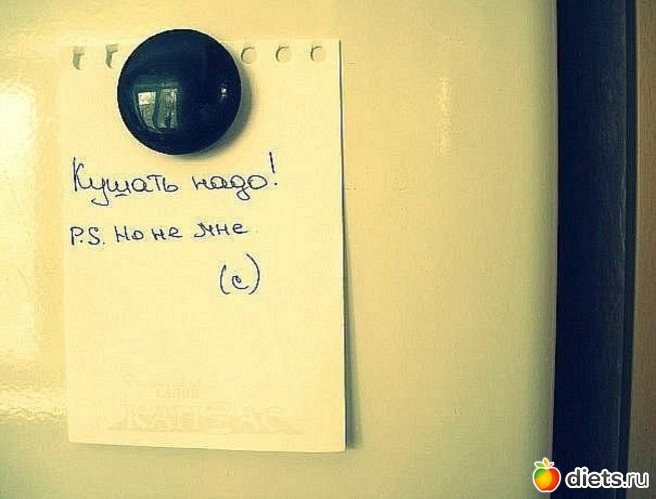 Кушать надо!
P.S. Но не мне
(с)
diets.ru